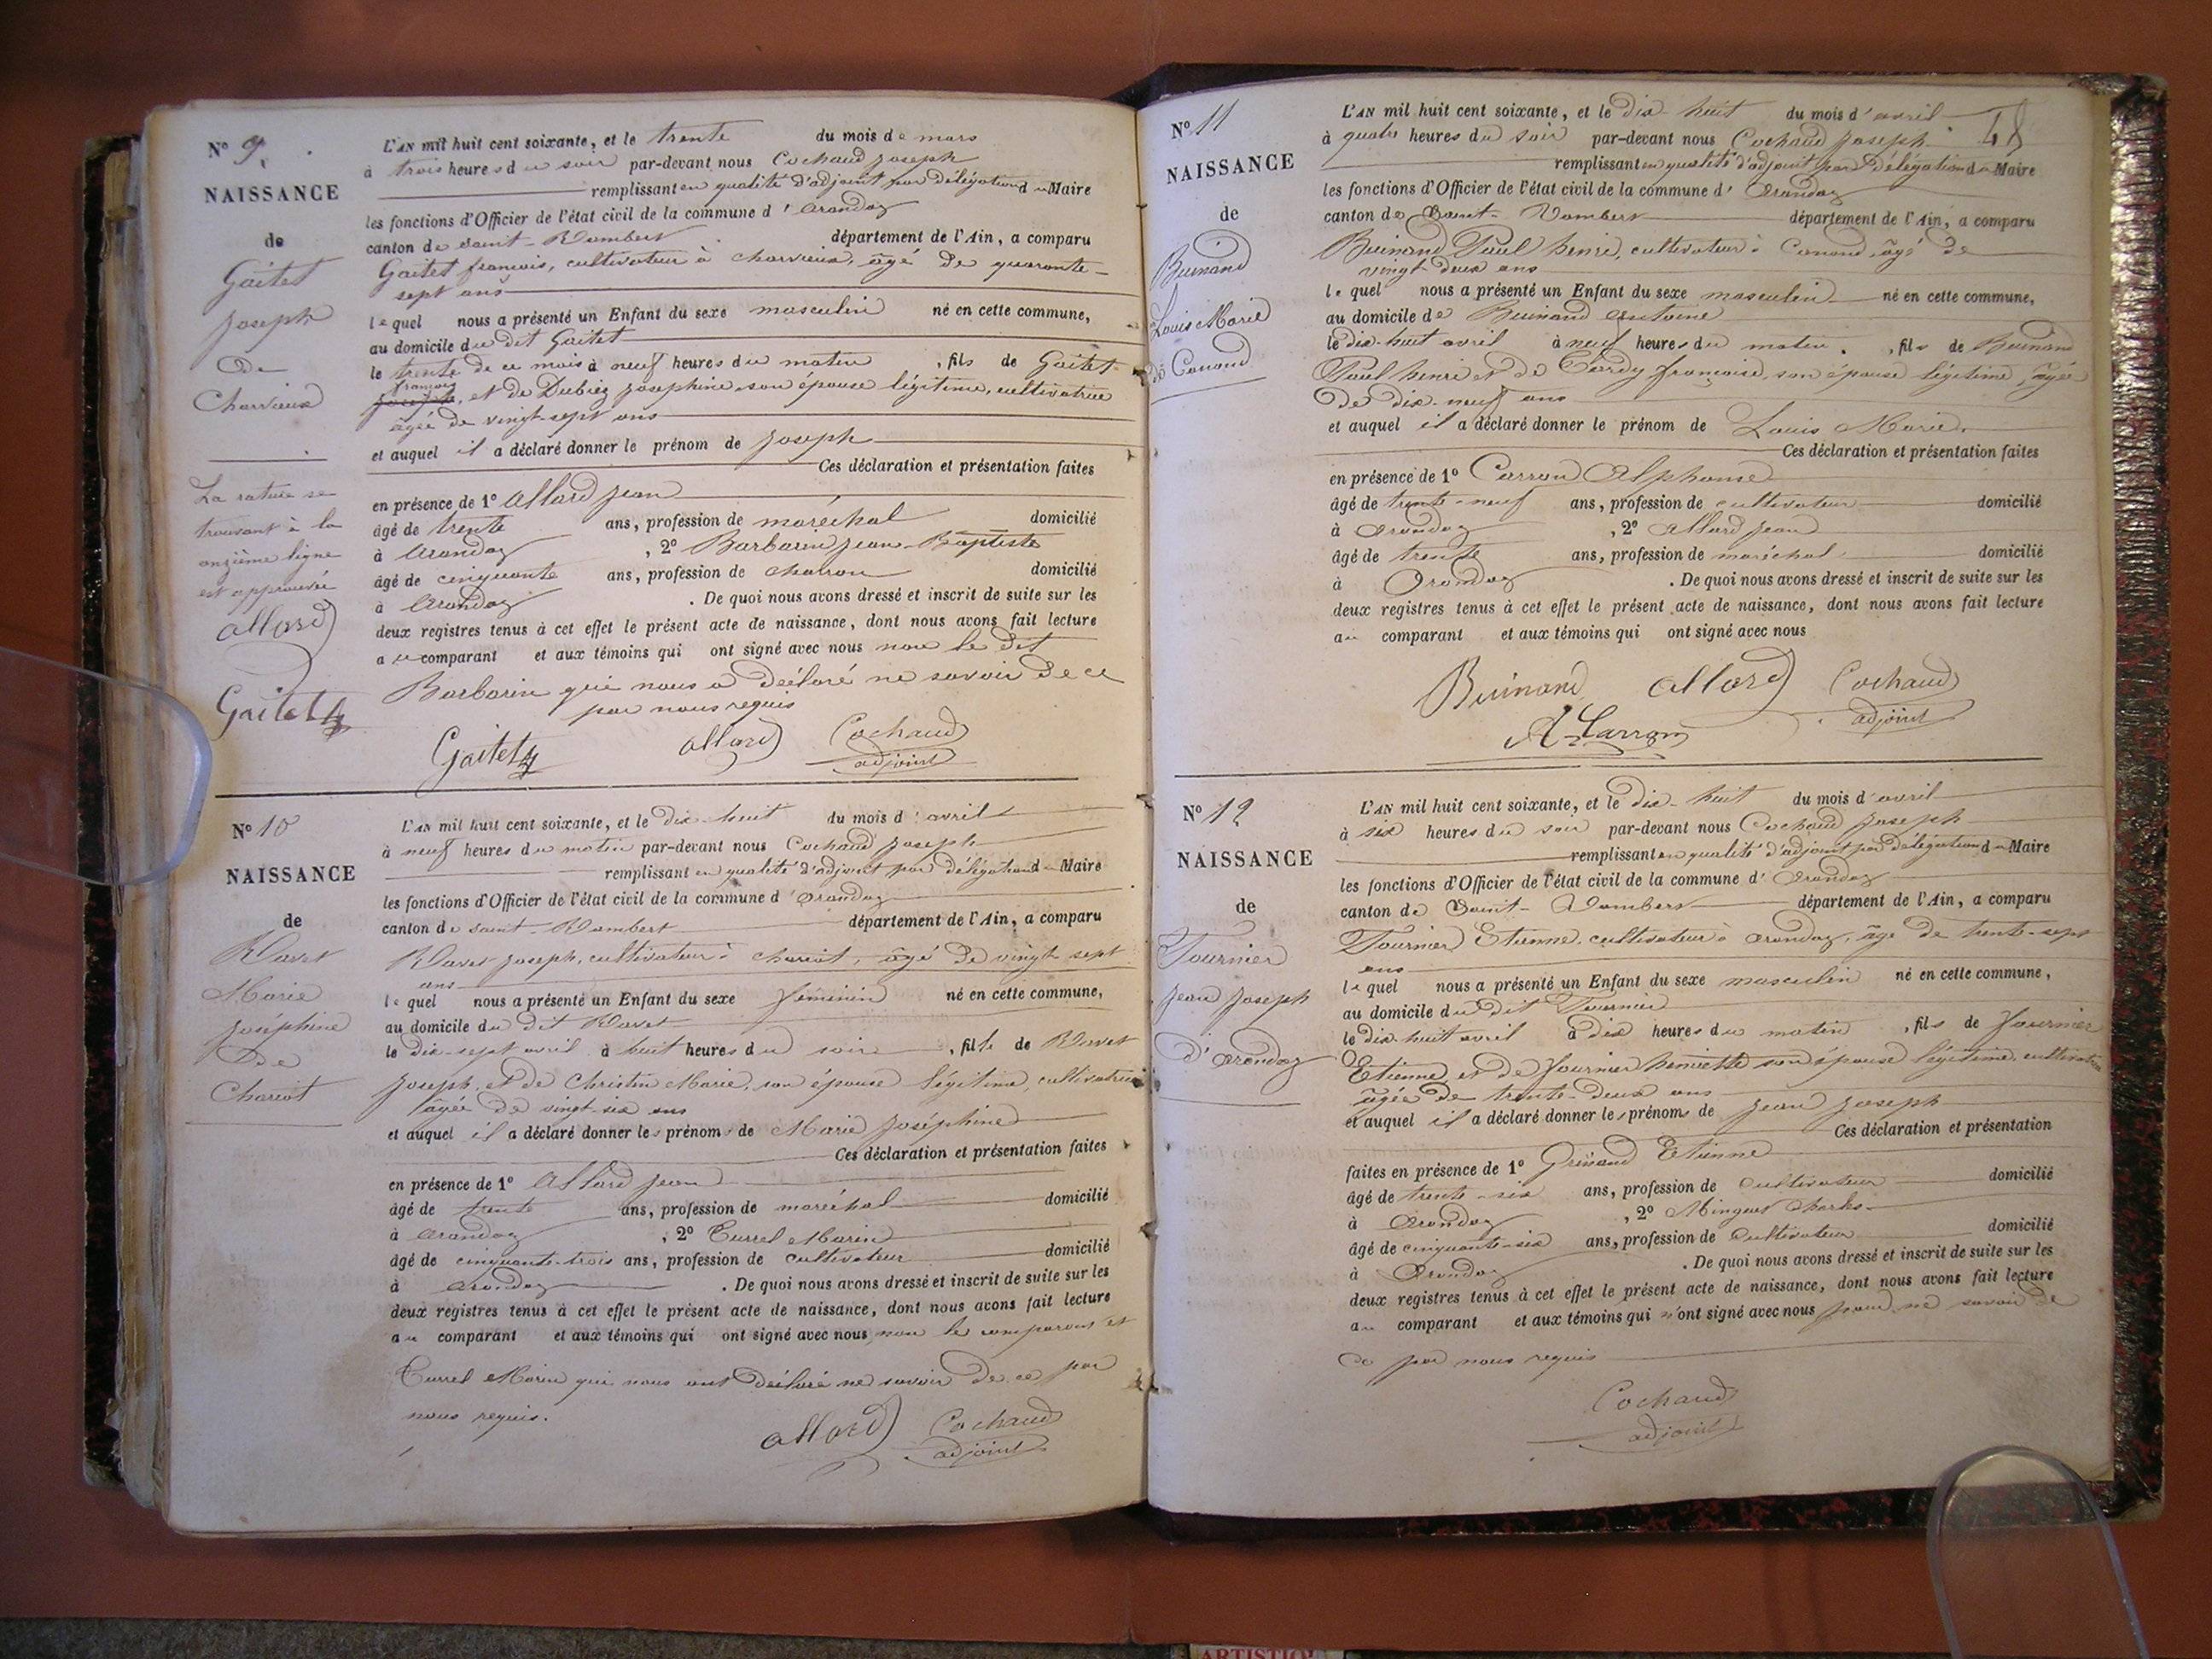 N° 9.
NAISSANCE
de
Gaitet
Joseph
De
Charvieux
La rature se
trouvant à la
onzième ligne
est approuvée
Allard
Gaitet
L'AN mil huit cent soixante, et le trente du mois de mars
à trois heures du soir par-devant nous Cochaud Joseph
remplissant en qualité d'adjoint par délégation du Maire
les fonctions d'Officier de l'état civil de la commune d'Arandaz
canton de Saint-Rambert département de l'Ain, a comparu
Gaitet françois, cultivateur à charvieux, âgé de quarante-
sept ans
lequel nous a présenté un Enfant du sexe masculin né en cette commune,
au domicile du dit Gaitet
le trente de ce mois à neuf heures du matin, fils de Gaitet
françois
Joseph, et de Dubiez Joséphine son épouse légitime, cultivatrice
âgée de vingt-sept ans
et auquel il a déclaré donner le prénom de Joseph
Ces déclaration et présentation faites
en présence de 1° Allard Jean
âgé de trente ans, profession de maréchal domicilié
à Arandaz, 2° Barbarin Jean-Baptiste
âgé de cinquante ans, profession de charron domicilié
à Arandaz. De quoi nous avons dressé et inscrit de suite sur les
deux registres tenus à cet effet le présent acte de naissance, dont nous avons fait lecture
au comparant et aux témoins qui ont signé avec nous non le dit
Barbarin qui nous a déclaré ne savoir de ce
par nous requis
Gaitet Allard Cochaud
adjoint
N° 10
NAISSANCE
de
Ravet
Marie
Joséphine
De
Chariot
L'AN mil huit cent soixante, et le dix-huit du mois d'avril
à neuf heures du matin par-devant nous Cochaud Joseph
remplissant en qualité d'adjoint par délégation du Maire
les fonctions d'Officier de l'état civil de la commune d'Arandaz
canton de saint-Rambert département de l'Ain, a comparu
Ravet Joseph, cultivateur à chariot, âgé de vingt-sept
ans
lequel nous a présenté un Enfant du sexe féminin né en cette commune,
au domicile du dit Ravet
le dix-sept avril à huit heures du soir, fille de Ravet
Joseph, et de Christin Marie, son épouse légitime, cultivatrice
âgée de vingt-six ans
et auquel il a déclaré donner les prénoms de Marie Joséphine
Ces déclaration et présentation faites
en présence de 1° Allard Jean
âgé de trente ans, profession de maréchal domicilié
à Arandaz, 2° Currel Marin
âgé de cinquante-trois ans, profession de cultivateur domicilié
à Arandaz. De quoi nous avons dressé et inscrit de suite sur les
deux registres tenus à cet effet le présent acte de naissance, dont nous avons fait lecture
au comparant et aux témoins qui ont signé avec nous non le comparant et
Currel Marin qui nous ont déclaré ne savoir de ce par
nous requis.
Allard Cochaud
adjoint
48
N° 11
NAISSANCE
de
Buinand
Louis Marie
de Conand
L'AN mil huit cent soixante, et le dix-huit du mois d'avril
à quatre heures du soir par-devant nous Cochaud Joseph
remplissant en qualité d'adjoint par Délégation du Maire
les fonctions d'Officier de l'état civil de la commune d'Arandaz
canton de Saint-Rambert département de l'Ain, a comparu
Buinand Paul henri, cultivateur à Conand âgé de
vingt-deux ans
lequel nous a présenté un Enfant du sexe masculin né en cette commune,
au domicile de Buinand Antoine
le dix-huit avril à neuf heures du matin, fils de Buinand
Paul henri et de Cardy françoise, son épouse légitime, âgée
de dix-neuf ans
et auquel il a déclaré donner le prénom de Louis Marie.
Ces déclaration et présentation faites
en présence de 1° Carron Alphonse
âgé de trente-neuf ans, profession de cultivateur domicilié
à Arandaz, 2° Allard Jean
âgé de trente ans, profession de maréchal domicilié
à Arandaz. De quoi nous avons dressé et inscrit de suite sur les
deux registres tenus à cet effet le présent acte de naissance, dont nous avons fait lecture
au comparant et aux témoins qui ont signé avec nous
Buinand Allard Cochaud
A. Carron adjoint
N° 12
NAISSANCE
de
Fournier
Jean Joseph
d'Arandaz
L'AN mil huit cent soixante, et le dix-huit du mois d'avril
à six heures du soir par-devant nous Cochaud Joseph
remplissant en qualité d'adjoint par délégation du Maire
les fonctions d'Officier de l'état civil de la commune d'Arandaz
canton de Saint-Rambert département de l'Ain, a comparu
Fournier Etienne, cultivateur à Arandaz, âgé de trente-sept
ans
lequel nous a présenté un Enfant du sexe masculin né en cette commune,
au domicile du dit Fournier
le dix-huit avril à dix heures du matin, fils de Fournier
Etienne, et de Fournier henriette son épouse légitime, cultivatrice
âgée de trente-deux ans
et auquel il a déclaré donner les prénoms de Jean Joseph
Ces déclaration et présentation
faites en présence de 1° Grinand Etienne
âgé de trente-six ans, profession de cultivateur domicilié
à Arandaz, 2° Minguet Charles
âgé de cinquante-six ans, profession de cultivateur domicilié
à Arandaz. De quoi nous avons dressé et inscrit de suite sur les
deux registres tenus à cet effet le présent acte de naissance, dont nous avons fait lecture
au comparant et aux témoins qui n'ont signé avec nous pour ne savoir de
ce par nous requis
Cochaud
adjoint